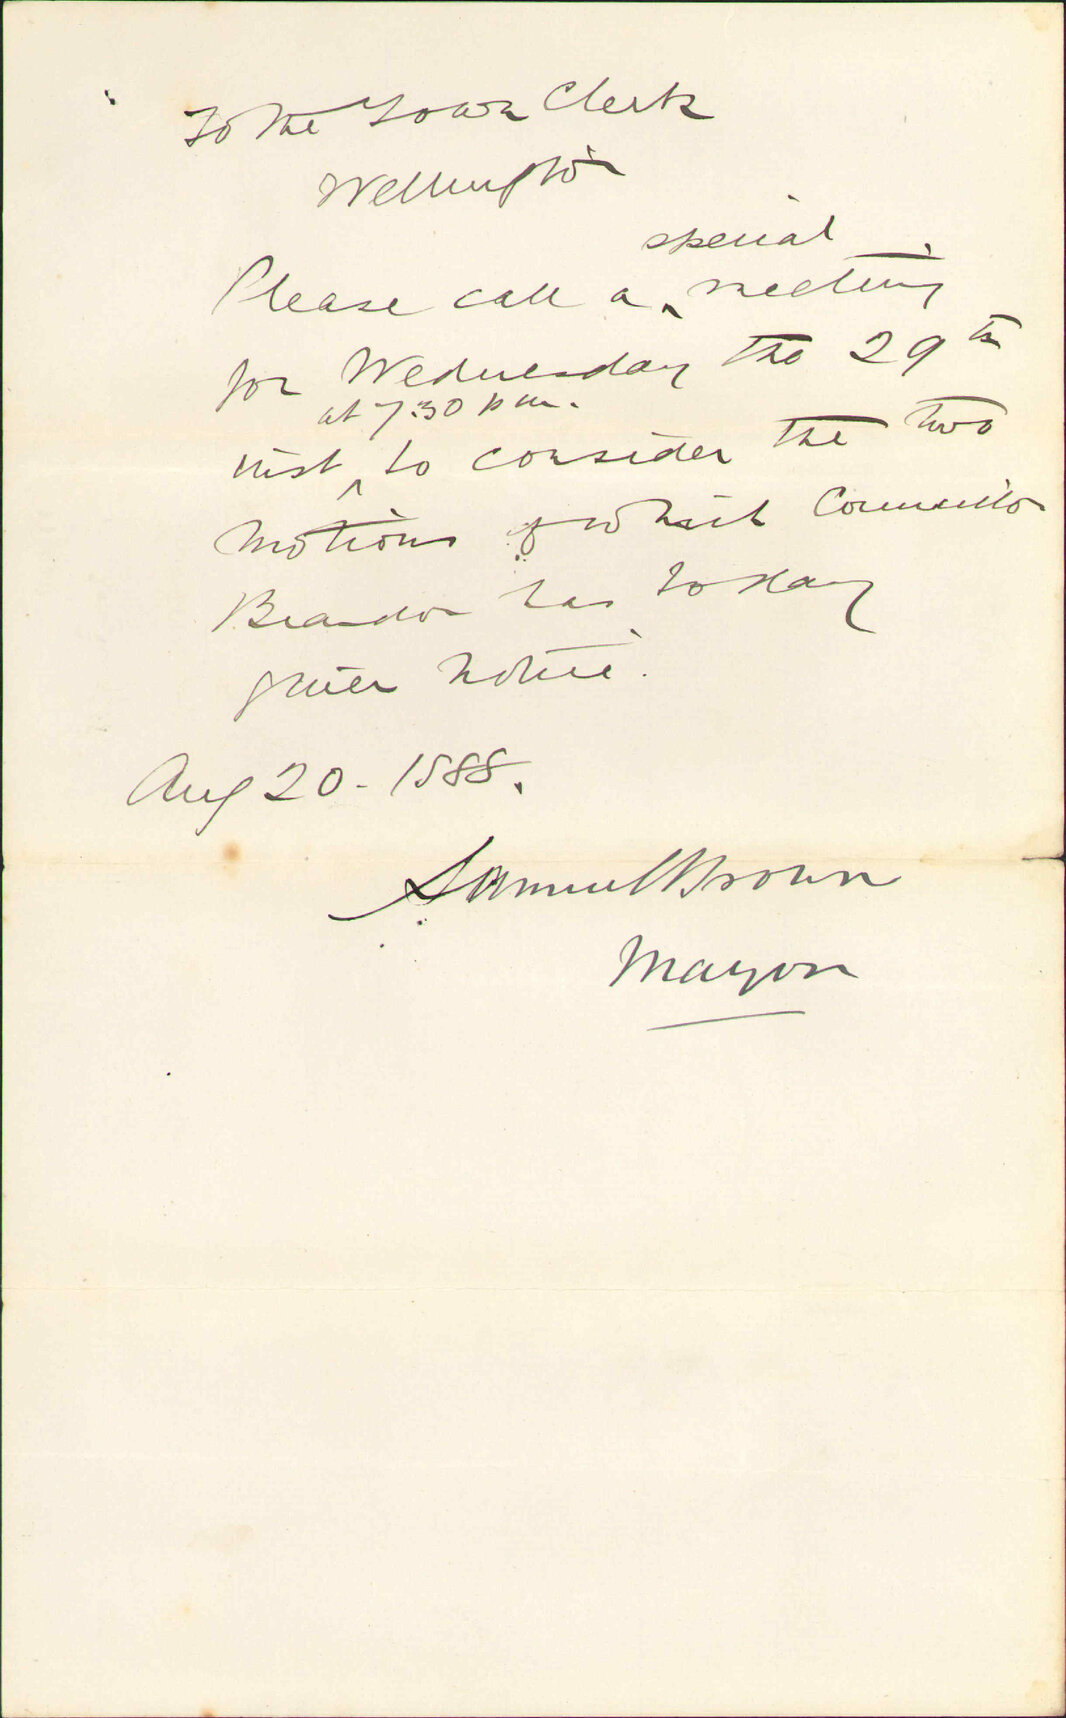 To the Town Clerk
Wellington
special
Please call a ^ meeting
for Wednesday the 29th
at 7.30 p m.
inst ^ to consider the two
motions of which Councillor
Brandon has today
given notice.
Aug 20 - 1888.
Samuel Brown
Mayor